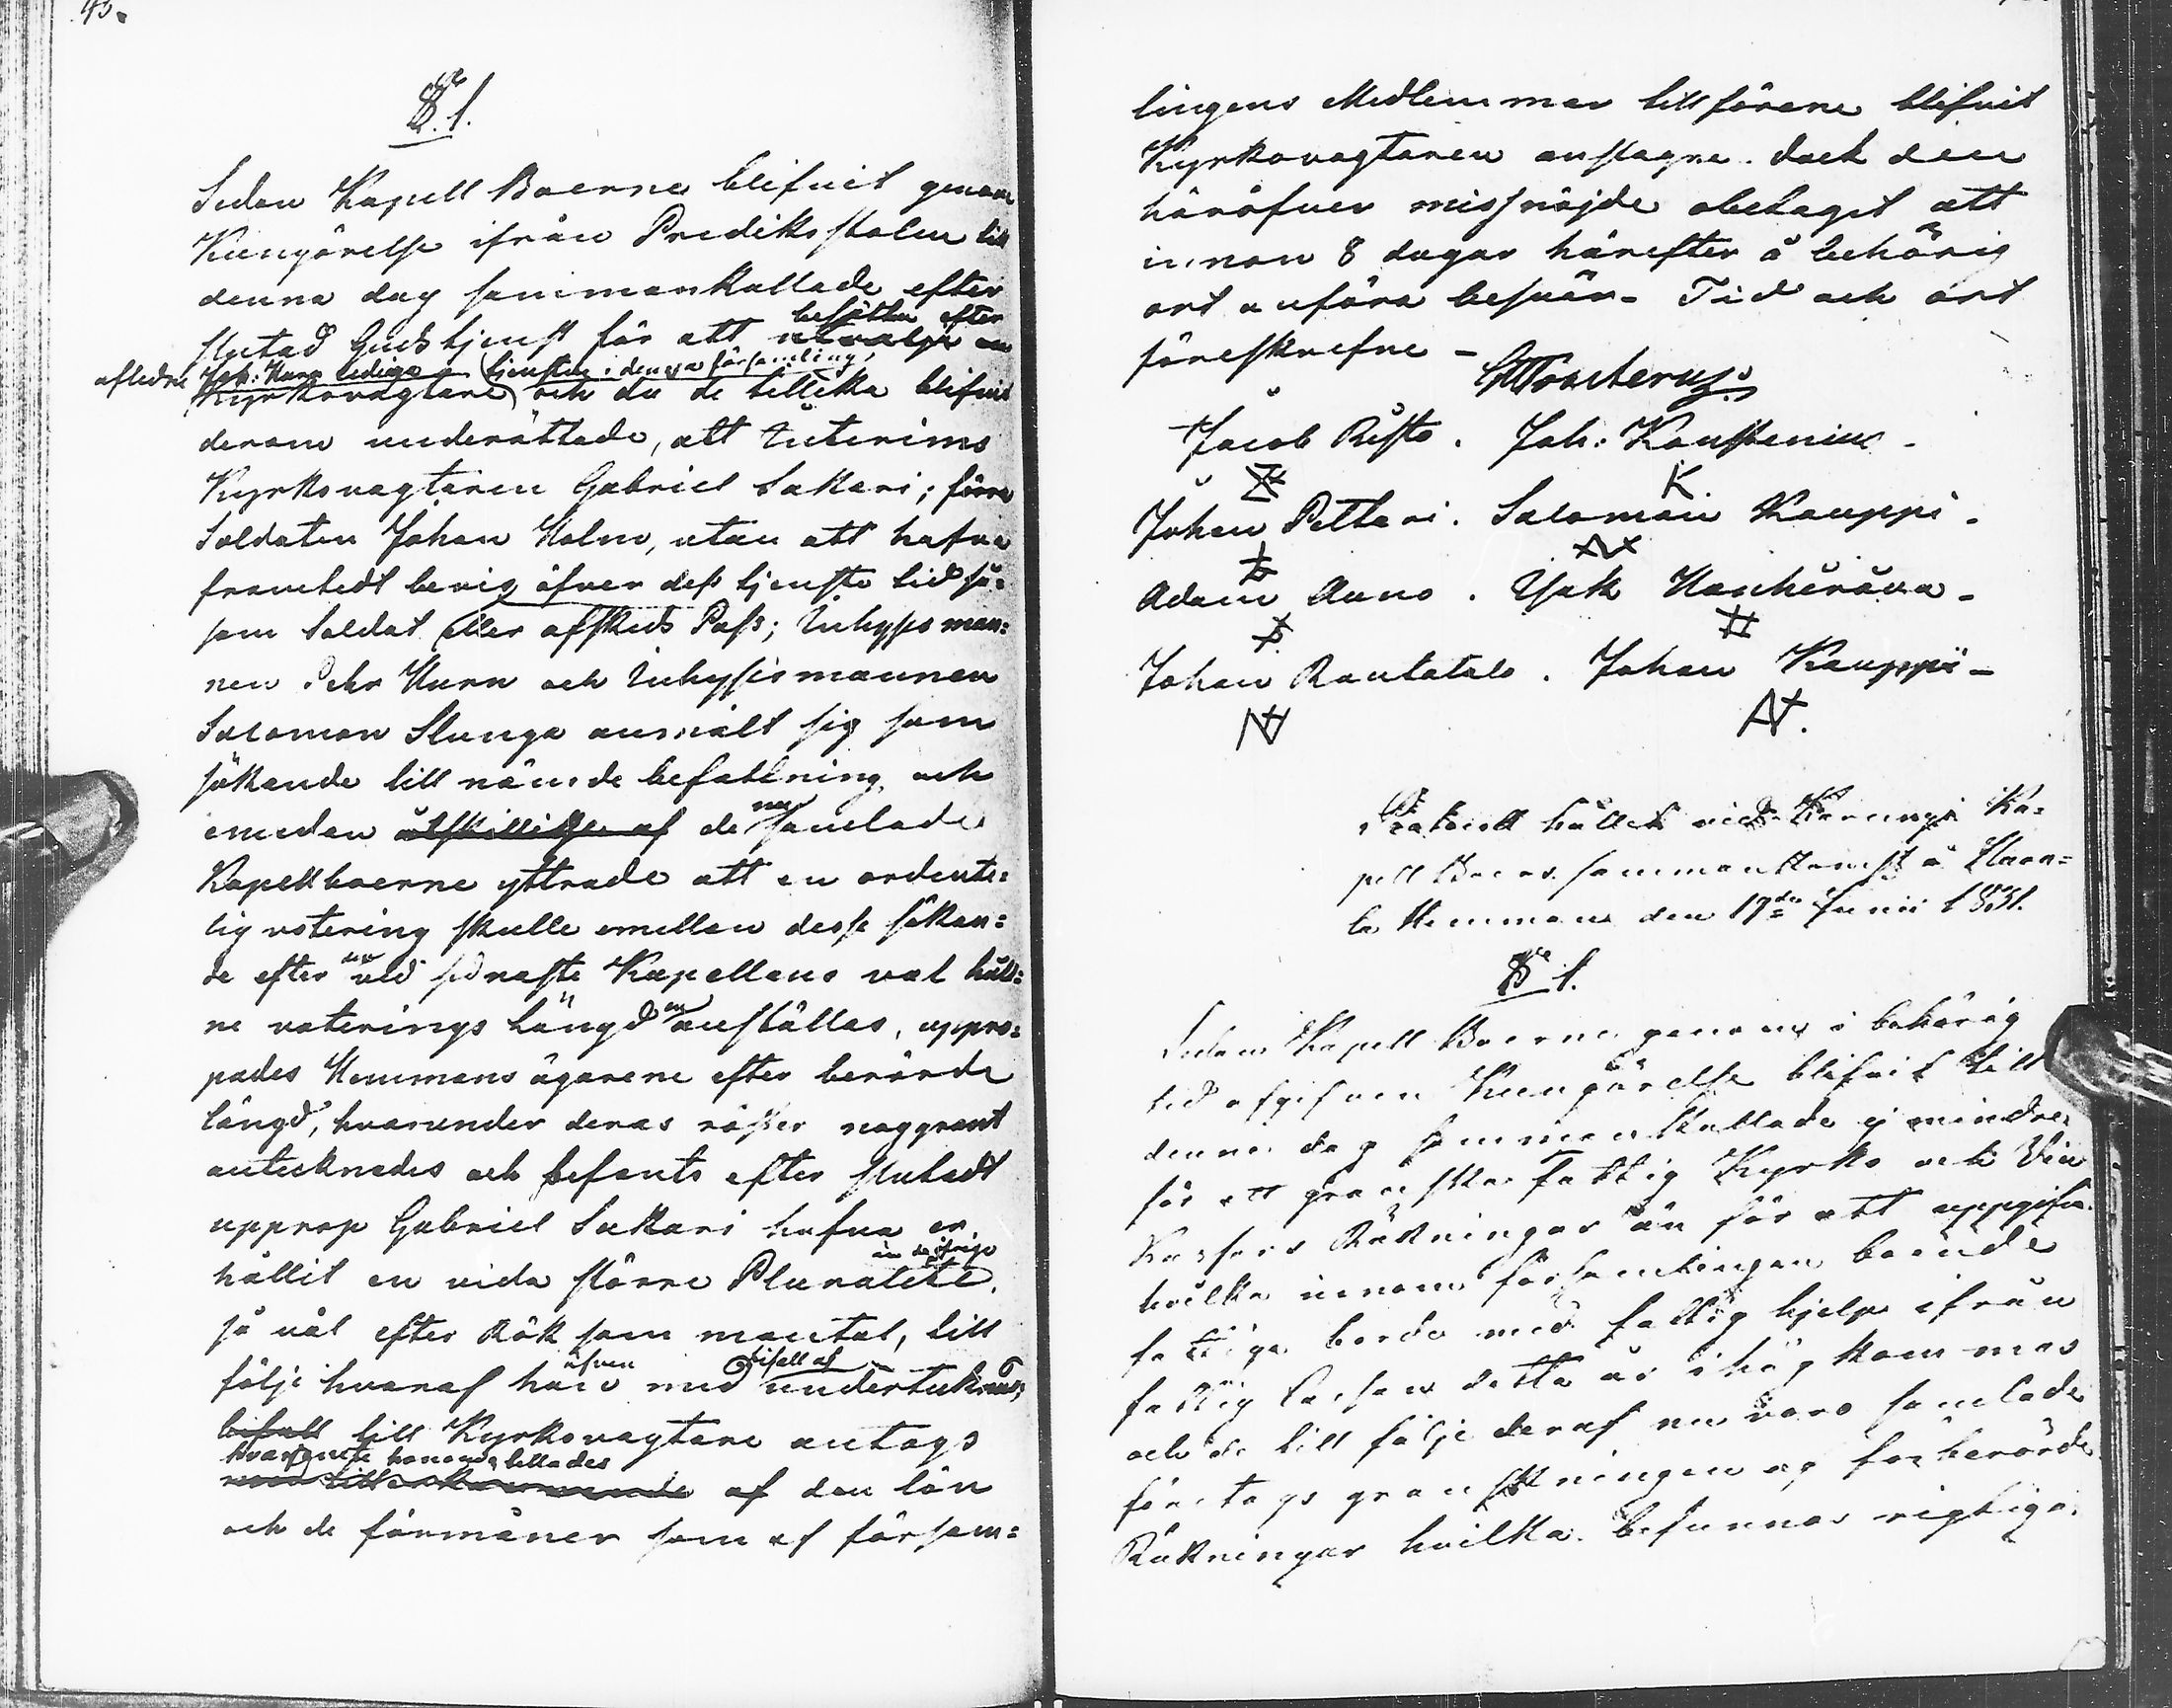 45.
§. 1.
Sedan Kapell Boerne blifvit genom
Kungörelse ifrån Predikostolen till
denna dag sammankallade efter
slutad Gudstjenst för att utvälja en besätta efter
afledne Joh: Kurn lediga tjensten i denna församling,
Kyrkovagtare och då de tillika blifvit
derom underättade, att Interims
Kyrkovagtaren Gabriel Sakari; förra
Soldaten Johan Holm, utan att hafva
framtedt bevis öfver dess tjenste tid så=
som Soldat eller afskeds Pass; Inhyses man=
nen Pehr Kurn och Inhysesmannen
Salomon Slunga anmält sig som
sökande till nämde befattning, och
emedan de nu samlade
Kapellboerne yttrade att en ordente=
lig votering skulle emellan desse sökan=
de efter en vid sednaste Kapellans val håll=
ne voterings längd nu anställas, uppro=
pades Hemmans ägarene efter berörde
längd, hvarunder deras röster noggrant
antecknades och befants efter slutadt
upprop Gabriel Sakari hafva er
hållit en vida större Pluralité än de öfrige
så väl efter Rök som mantal, till
följe hvaraf han äfven med bifall af undertecknad,
bifall till Kyrkovagtare antogs
hvarjemte honom tillades
af den lön
och de förmåner som af försam=
lingens Medlemmar tillförene blifvit
Kyrkovagtaren anslagne. dock den
häröfver missnöjde obetaget att
innan 8 dagar härefter å behörig
ort anföra besvär. Tid och ort
föreskrefne -
Jacob Risto. Joh: Kanstenius.
K
Johan Pettari. Salomon Kauppi.
Adam Auno. Isak Hanhiråva.
Johan Rantatalo. Johan Kauppi.
Protocoll hållet vid Karungi Ka=
pell Boers sammankomst å
Hemman den 19de Junii 1831.
§ 1.
Sedan Kapell Boerne genom i behörig
tid afgifven Kungörelse blifvit till
denna dag sammankallade ej mindre
för att granska fattig Kyrko och Vin
Kassors Räkningar än för att uppgifva
hvilka innom församlingen boende
fattiga borde med fattig hjelp ifrån
fattig Cassan detta år ihågkommas
och de till följe deraf nu voro samlade
företogs granskningen af förberörde
Räkningar hvilka befunnos riktiga.